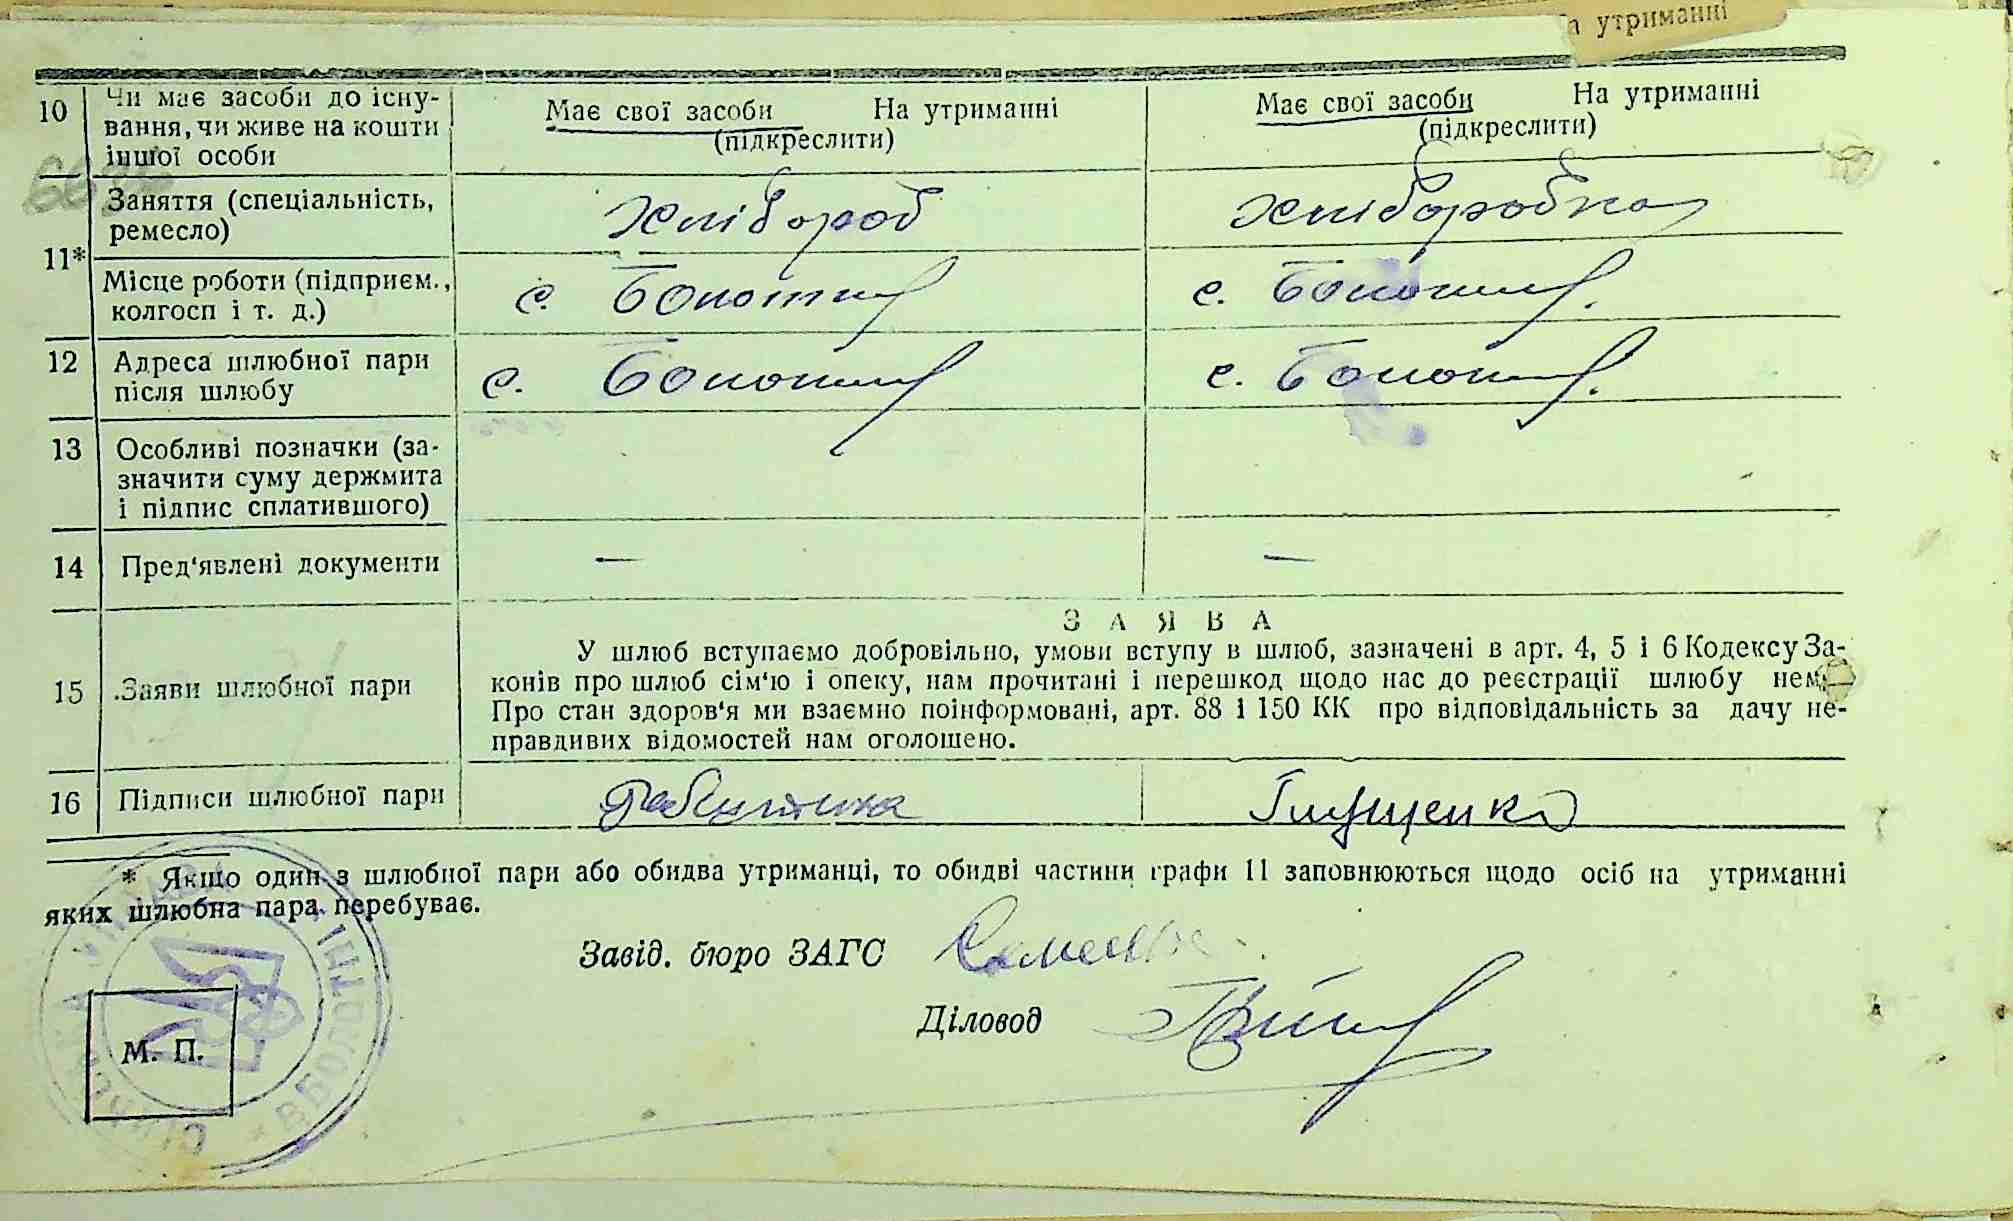 а утриманні
10 Чи має засоби до існу-
вання, чи живе на кошти
іншої особи
Має свої засоби На утриманні
(підкреслити)
Має свої засоби На утриманні
(підкреслити)
11*
Заняття (спеціальність,
ремесло)
хлібороб
хліборобка
Місце роботи (підприєм.,
колгосп і т. д.)
с. Болотниця
с. Болотниця.
12 Адреса шлюбної пари
після шлюбу
с. Болотниця
с. Болотниця.
13 Особливі позначки (за-
значити суму держмита
і підпис сплатившого)
14 Пред'явлені документи — —
ЗАЯВА
15 Заяви шлюбної пари
У шлюб вступаємо добровільно, умови вступу в шлюб, зазначені в арт. 4, 5 і 6 Кодексу За-
конів про шлюб сім'ю і опеку, нам прочитані і перешкод щодо нас до реєстрації шлюбу нема
Про стан здоров'я ми взаємно поінформовані, арт. 88 і 150 КК про відповідальність за дачу не-
правдивих відомостей нам оголошено.
16 Підписи шлюбної пари
Глущенко
* Якщо один з шлюбної пари або обидва утриманці, то обидві частини графи 11 заповнюються щодо осіб на утриманні
яких шлюбна пара перебуває.
Завід. бюро ЗАГС
Діловод
М. П.